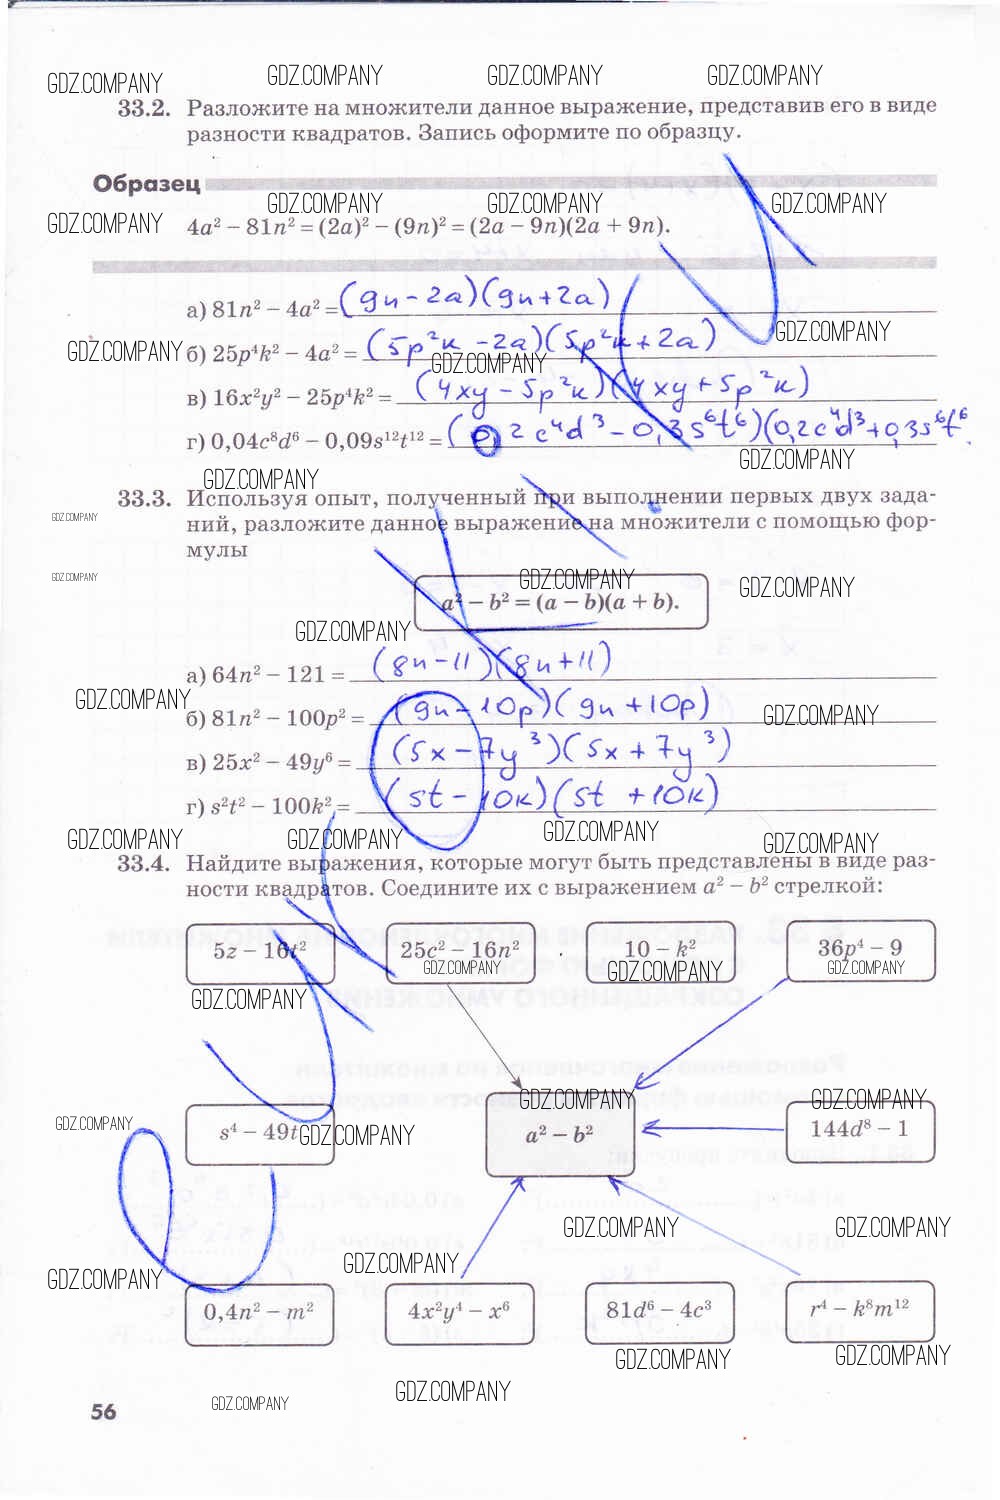 GDZ.COMPANY GDZ.COMPANY GDZ.COMPANY GDZ.COMPANY
33.2. Разложите на множители данное выражение, представив его в виде
разности квадратов. Запись оформите по образцу.
Образец
GDZ.COMPANY GDZ.COMPANY GDZ.COMPANY GDZ.COMPANY
4a² − 81n² = (2a)² − (9n)² = (2a − 9n)(2a + 9n).
а) 81n² − 4a² = (9n − 2a)(9n + 2a)
GDZ.COMPANY GDZ.COMPANY GDZ.COMPANY
б) 25p⁴k² − 4a² = (5p²k − 2a)(5p²k + 2a)
в) 16x²y² − 25p⁴k² = (4xy − 5p²k)(4xy + 5p²k)
г) 0,04c⁸d⁶ − 0,09s¹²t¹² = (0,2c⁴d³ − 0,3s⁶t⁶)(0,2c⁴d³ + 0,3s⁶t⁶
GDZ.COMPANY GDZ.COMPANY
33.3. Используя опыт, полученный при выполнении первых двух зада-
GDZ.COMPANY
ний, разложите данное выражение на множители с помощью фор-
мулы
GDZ.COMPANY GDZ.COMPANY GDZ.COMPANY
a² − b² = (a − b)(a + b).
GDZ.COMPANY
а) 64n² − 121 = (8n − 11)(8n + 11)
GDZ.COMPANY GDZ.COMPANY
б) 81n² − 100p² = (9n − 10p)(9n + 10p)
в) 25x² − 49y⁶ = (5x − 7y³)(5x + 7y³)
г) s²t² − 100k² = (st − 10k)(st + 10k)
GDZ.COMPANY GDZ.COMPANY GDZ.COMPANY GDZ.COMPANY
33.4. Найдите выражения, которые могут быть представлены в виде раз-
ности квадратов. Соедините их с выражением a² − b² стрелкой:
5z − 16t² 25c² − 16n² 10 − k² 36p⁴ − 9
GDZ.COMPANY GDZ.COMPANY GDZ.COMPANY GDZ.COMPANY
GDZ.COMPANY GDZ.COMPANY GDZ.COMPANY
s⁴ − 49t GDZ.COMPANY a² − b² 144d⁸ − 1
GDZ.COMPANY GDZ.COMPANY
GDZ.COMPANY GDZ.COMPANY
0,4n² − m² 4x²y⁴ − x⁶ 81d⁶ − 4c³ r⁴ − k⁸m¹²
GDZ.COMPANY GDZ.COMPANY
GDZ.COMPANY GDZ.COMPANY
56